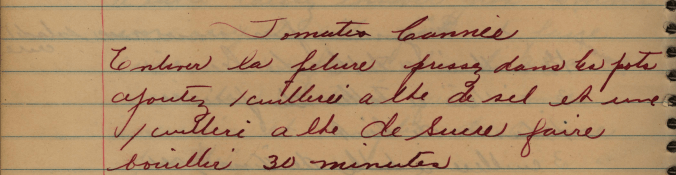 Tomates Cannée
Enlever la pelure pressez dans les pots
ajoutez 1 cuilleree a the de sel et une
1 cuilleré a the de Sucre faire
bouillir 30 minutes